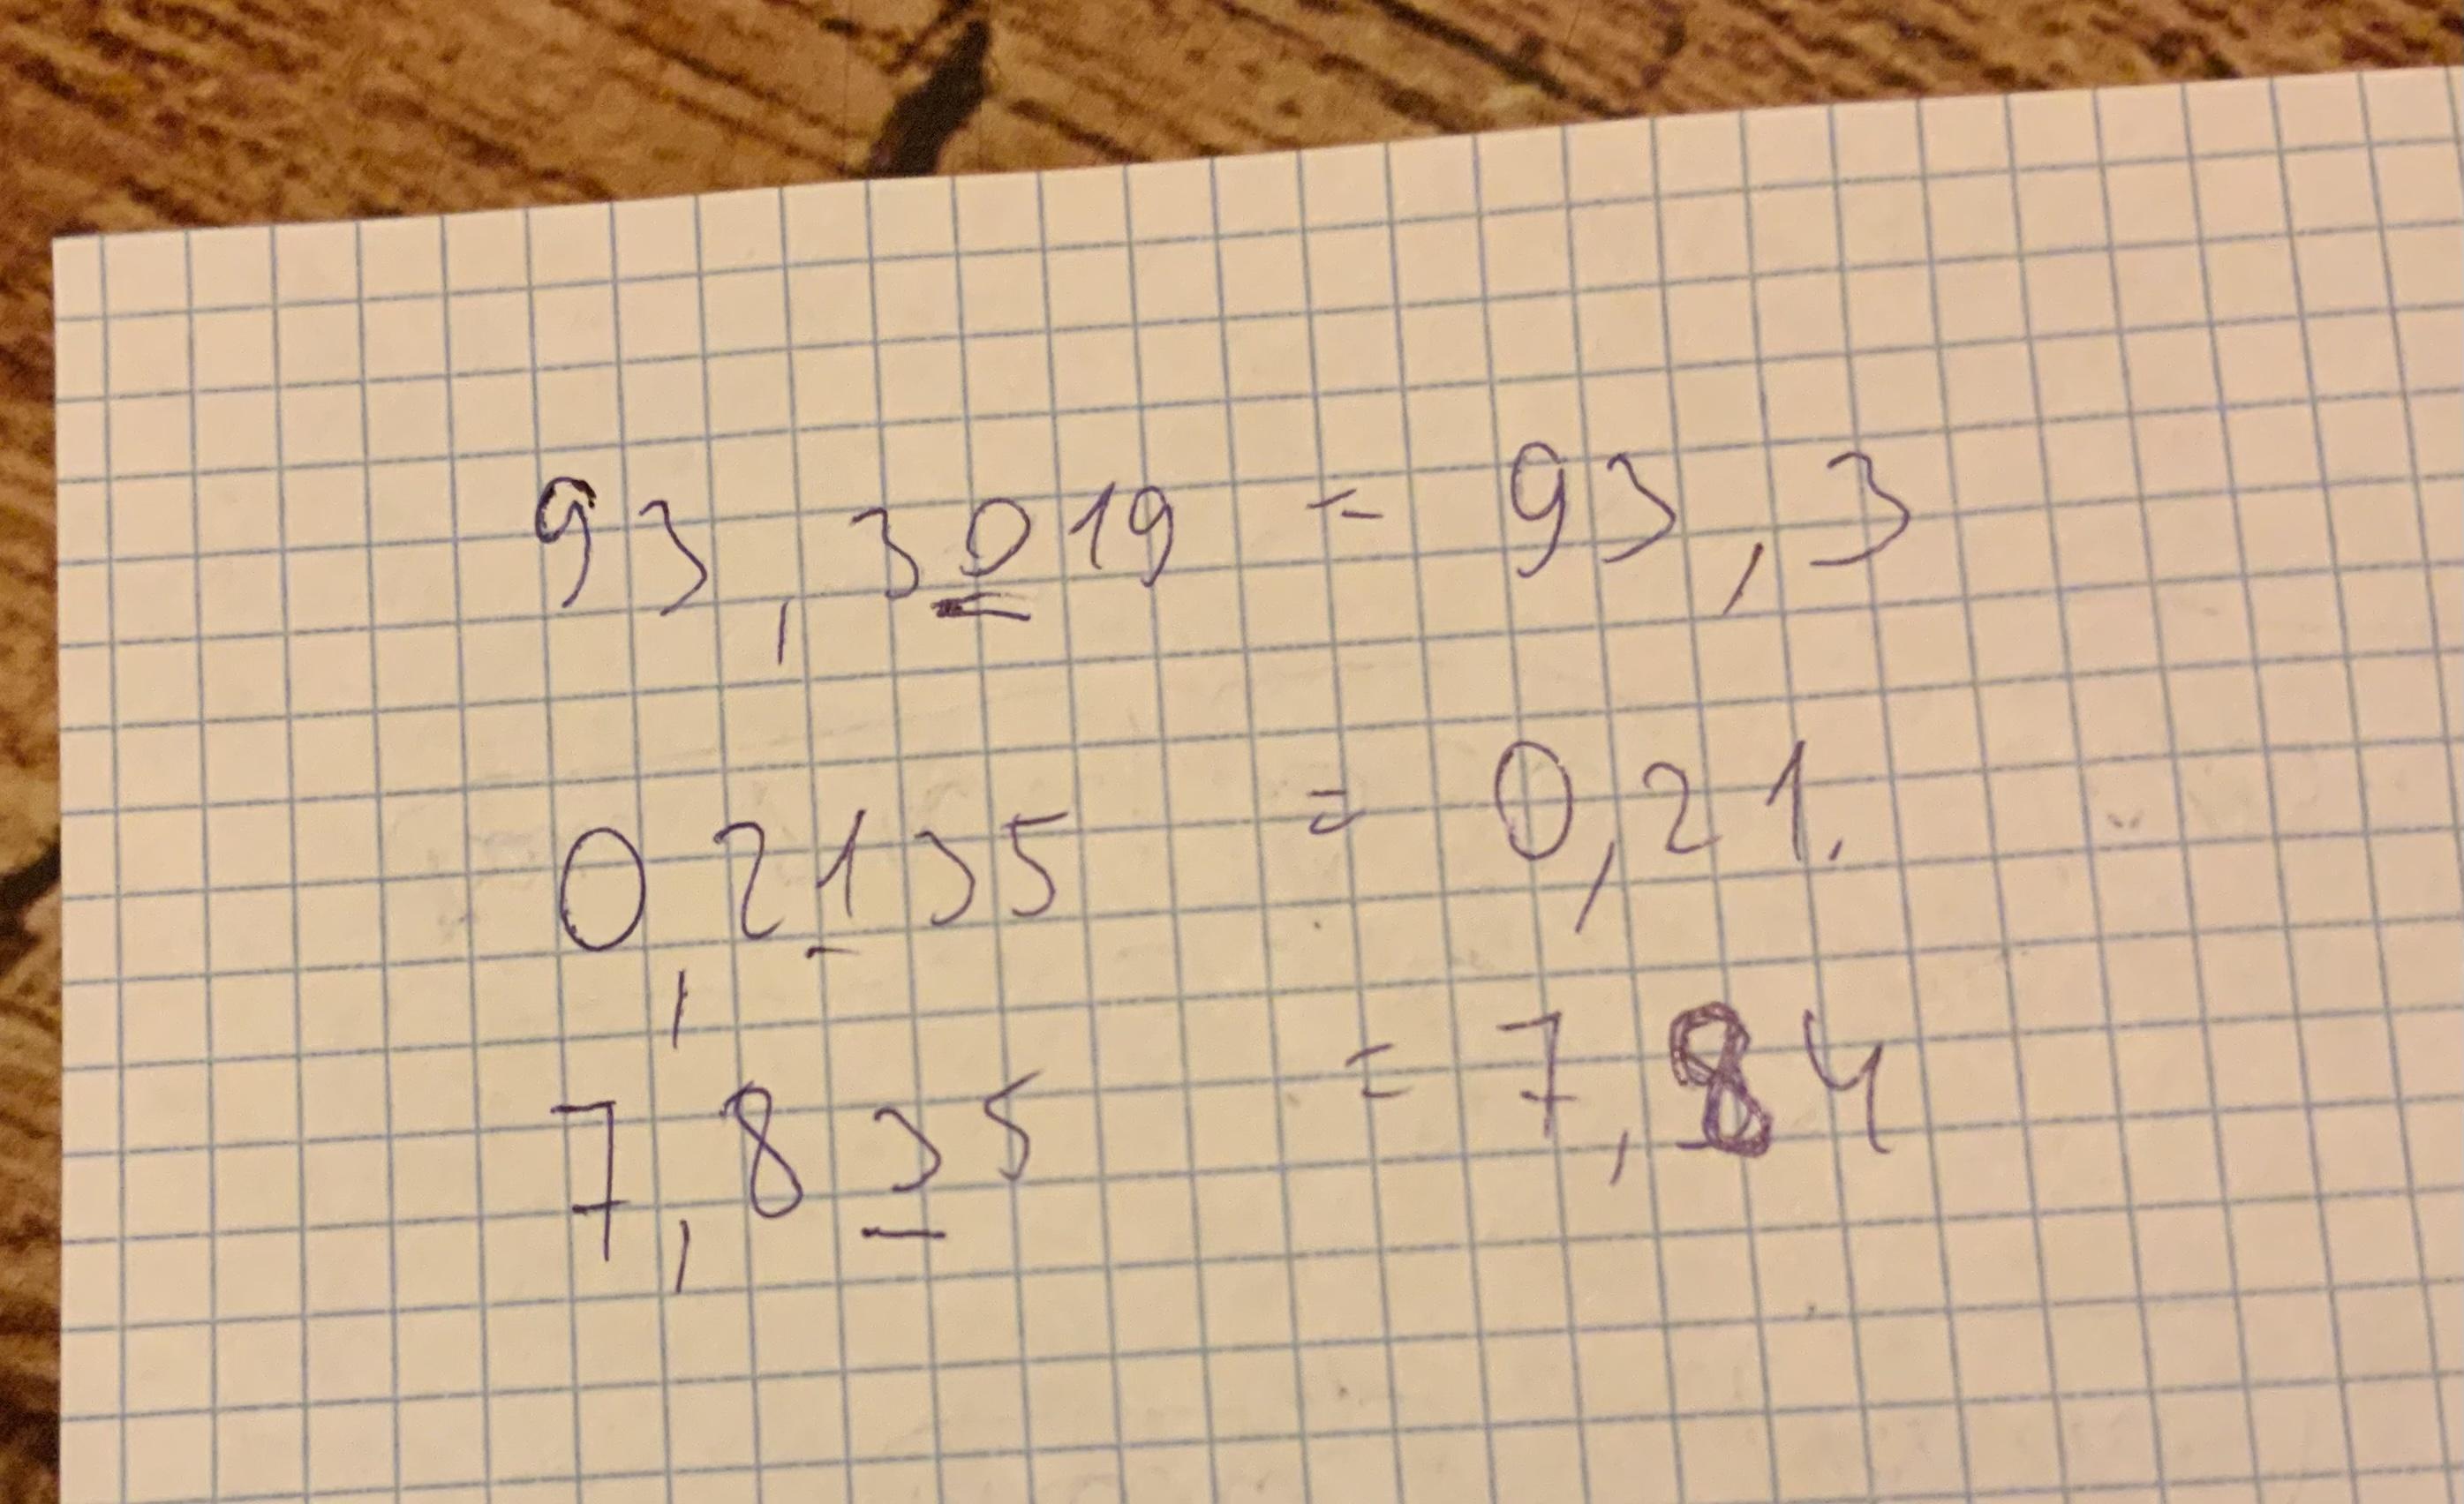 93,3019 = 93,3
0,2135 = 0,21.
7,835 = 7,84